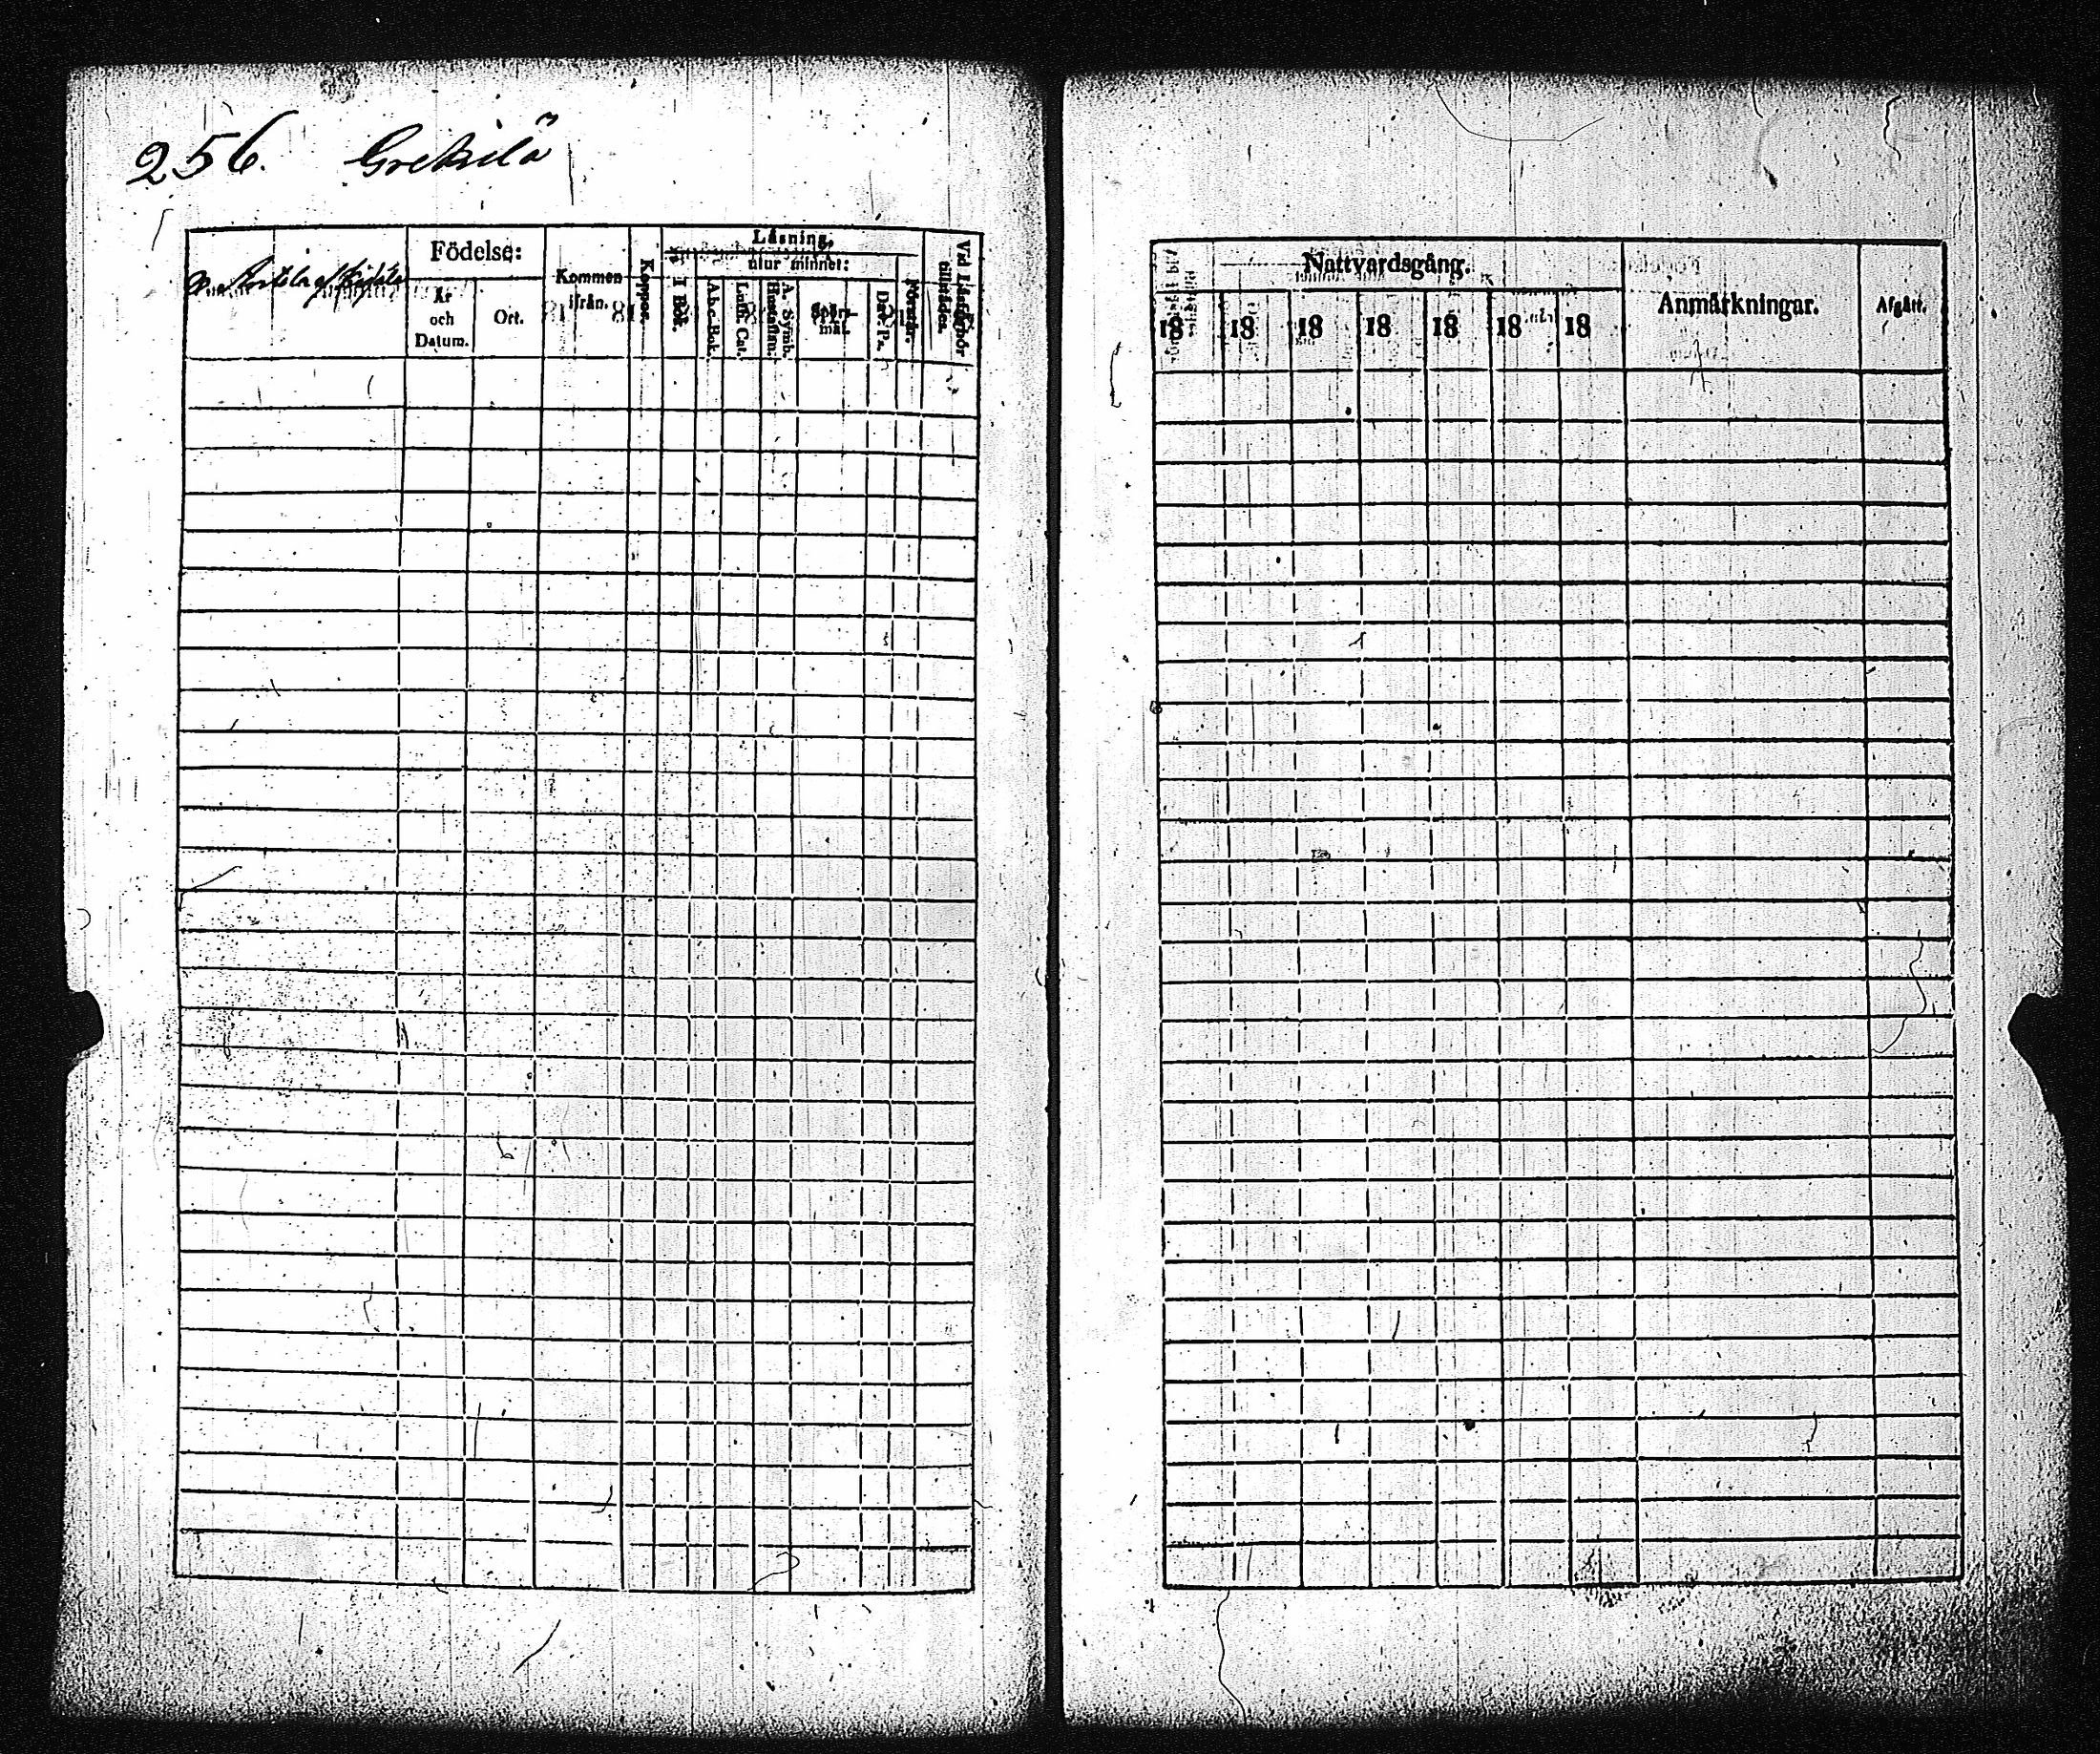 256. Grekilä
Födelse:
År och Datum.
Ort.
Kommen ifrån.
Koppor.
Läsning,
I Bok.
utur minnet:
A.b.c.-Bok.
Luth. Cat.
A. Symb. Hustaflan.
Spörsmål.
Dav. Ps.
Förstår.
Vid Läsförhör tillstädes.
Nattvardsgång.
18 18 18 18 18 18 18
Anmärkningar.
Afgått.